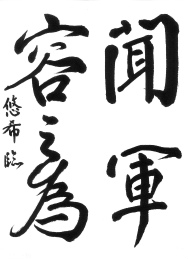 聞軍
容之為
悠希臨